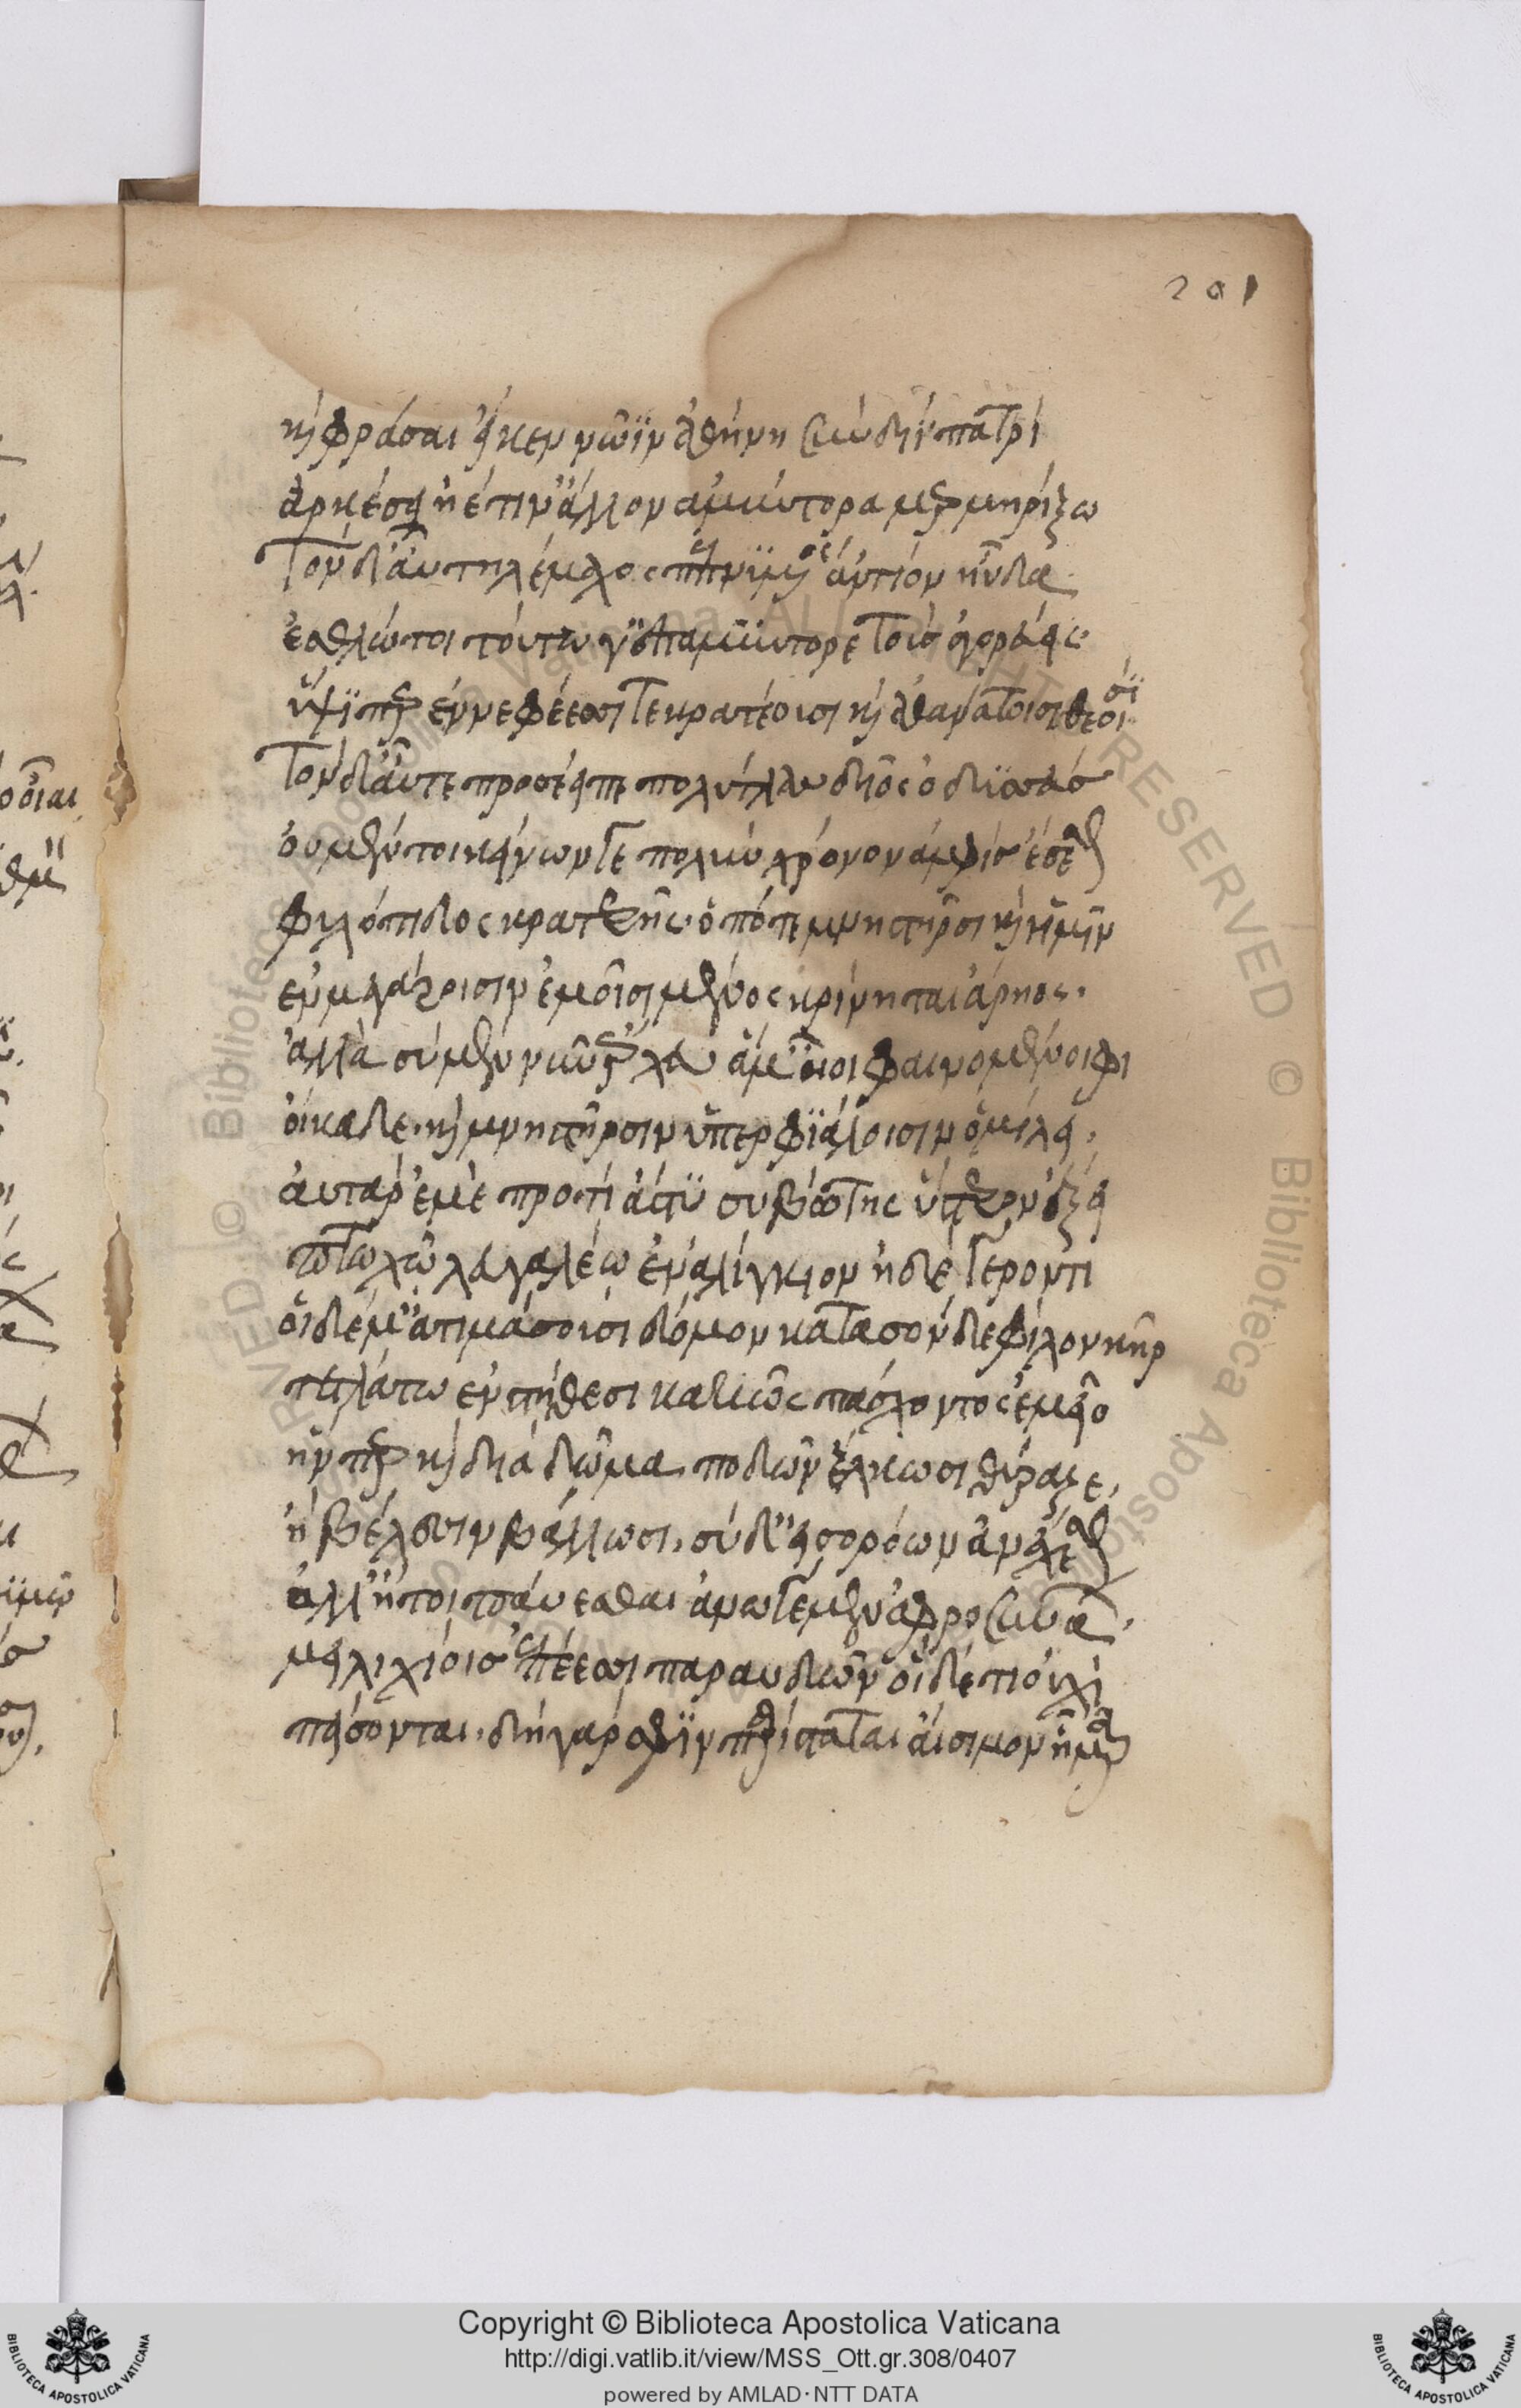 201
καὶ φράσαι εἴ κεν νῶϊν ἀθήνη σὺν διῒ πατρὶ
ἀρκέσει ἠέ τιν' ἄλλον ἀμύντορα μερμηρίξω
Τὸν δ' αὖ τηλέμαχος πεπνυμένος ἀντίον ηὔδα
ἐσθλώ τοι τούτω γ' ἐπαμύντορε τοὺς ἀγορεύεις
ὕψι περ ἐν νεφέεσσι
Τὸν δ' αὖτε προσέειπε πολύτλας δῖος ὀδυσσεύς
οὐ μέν τοι κείνω γε πολὺν χρόνον ἀμφὶς ἔσεσθον
φυλόπιδος κρατερῆς ὁπότε μνηστῆρσι καὶ ἡμῖν
ἐν μεγάροισιν ἐμοῖσι μένος κρίνηται ἄρηος.
ἀλλὰ σὺ μὲν νῦν ἔρχευ ἅμ' ἠοῖ φαινομένηφι
οἴκαδε. καὶ μνηστῆρσιν ὑπερφιάλοισιν ὁμίλει.
αὐτὰρ ἐμὲ προτὶ ἄστυ συβώτης ὕστερον ἄξει
πτωχῷ λευγαλέω ἐναλίγκιον ἠδὲ γέροντι
οἱ δέ μ' ἀτιμάσουσι δόμον κάτα σὸν δὲ φίλον κῆρ
τετλάτω ἐν στήθεσι κακῶς πάσχοντος ἐμεῖο
ἤν περ καὶ διὰ δῶμα ποδῶν ἕλκωσι θύραζε,
ἢ βέλεσιν βάλλωσι. σὺ δ' εἰσορόων ἀνέχεσθαι
ἀλλ' ἤτοι παύεσθαι ἀνωγέμεν ἀφροσυνάων,
μειλιχίοις ἐπέεσσι παραυδῶν οἱ δέ τοι οὐχὶ
πείσονται. δὴ γάρ σφιν παρίσταται αἴσιμον ἦμαρ
Copyright © Biblioteca Apostolica Vaticana
http://digi.vatlib.it/view/MSS_Ott.gr.308/0407
powered by AMLAD·NTT DATA